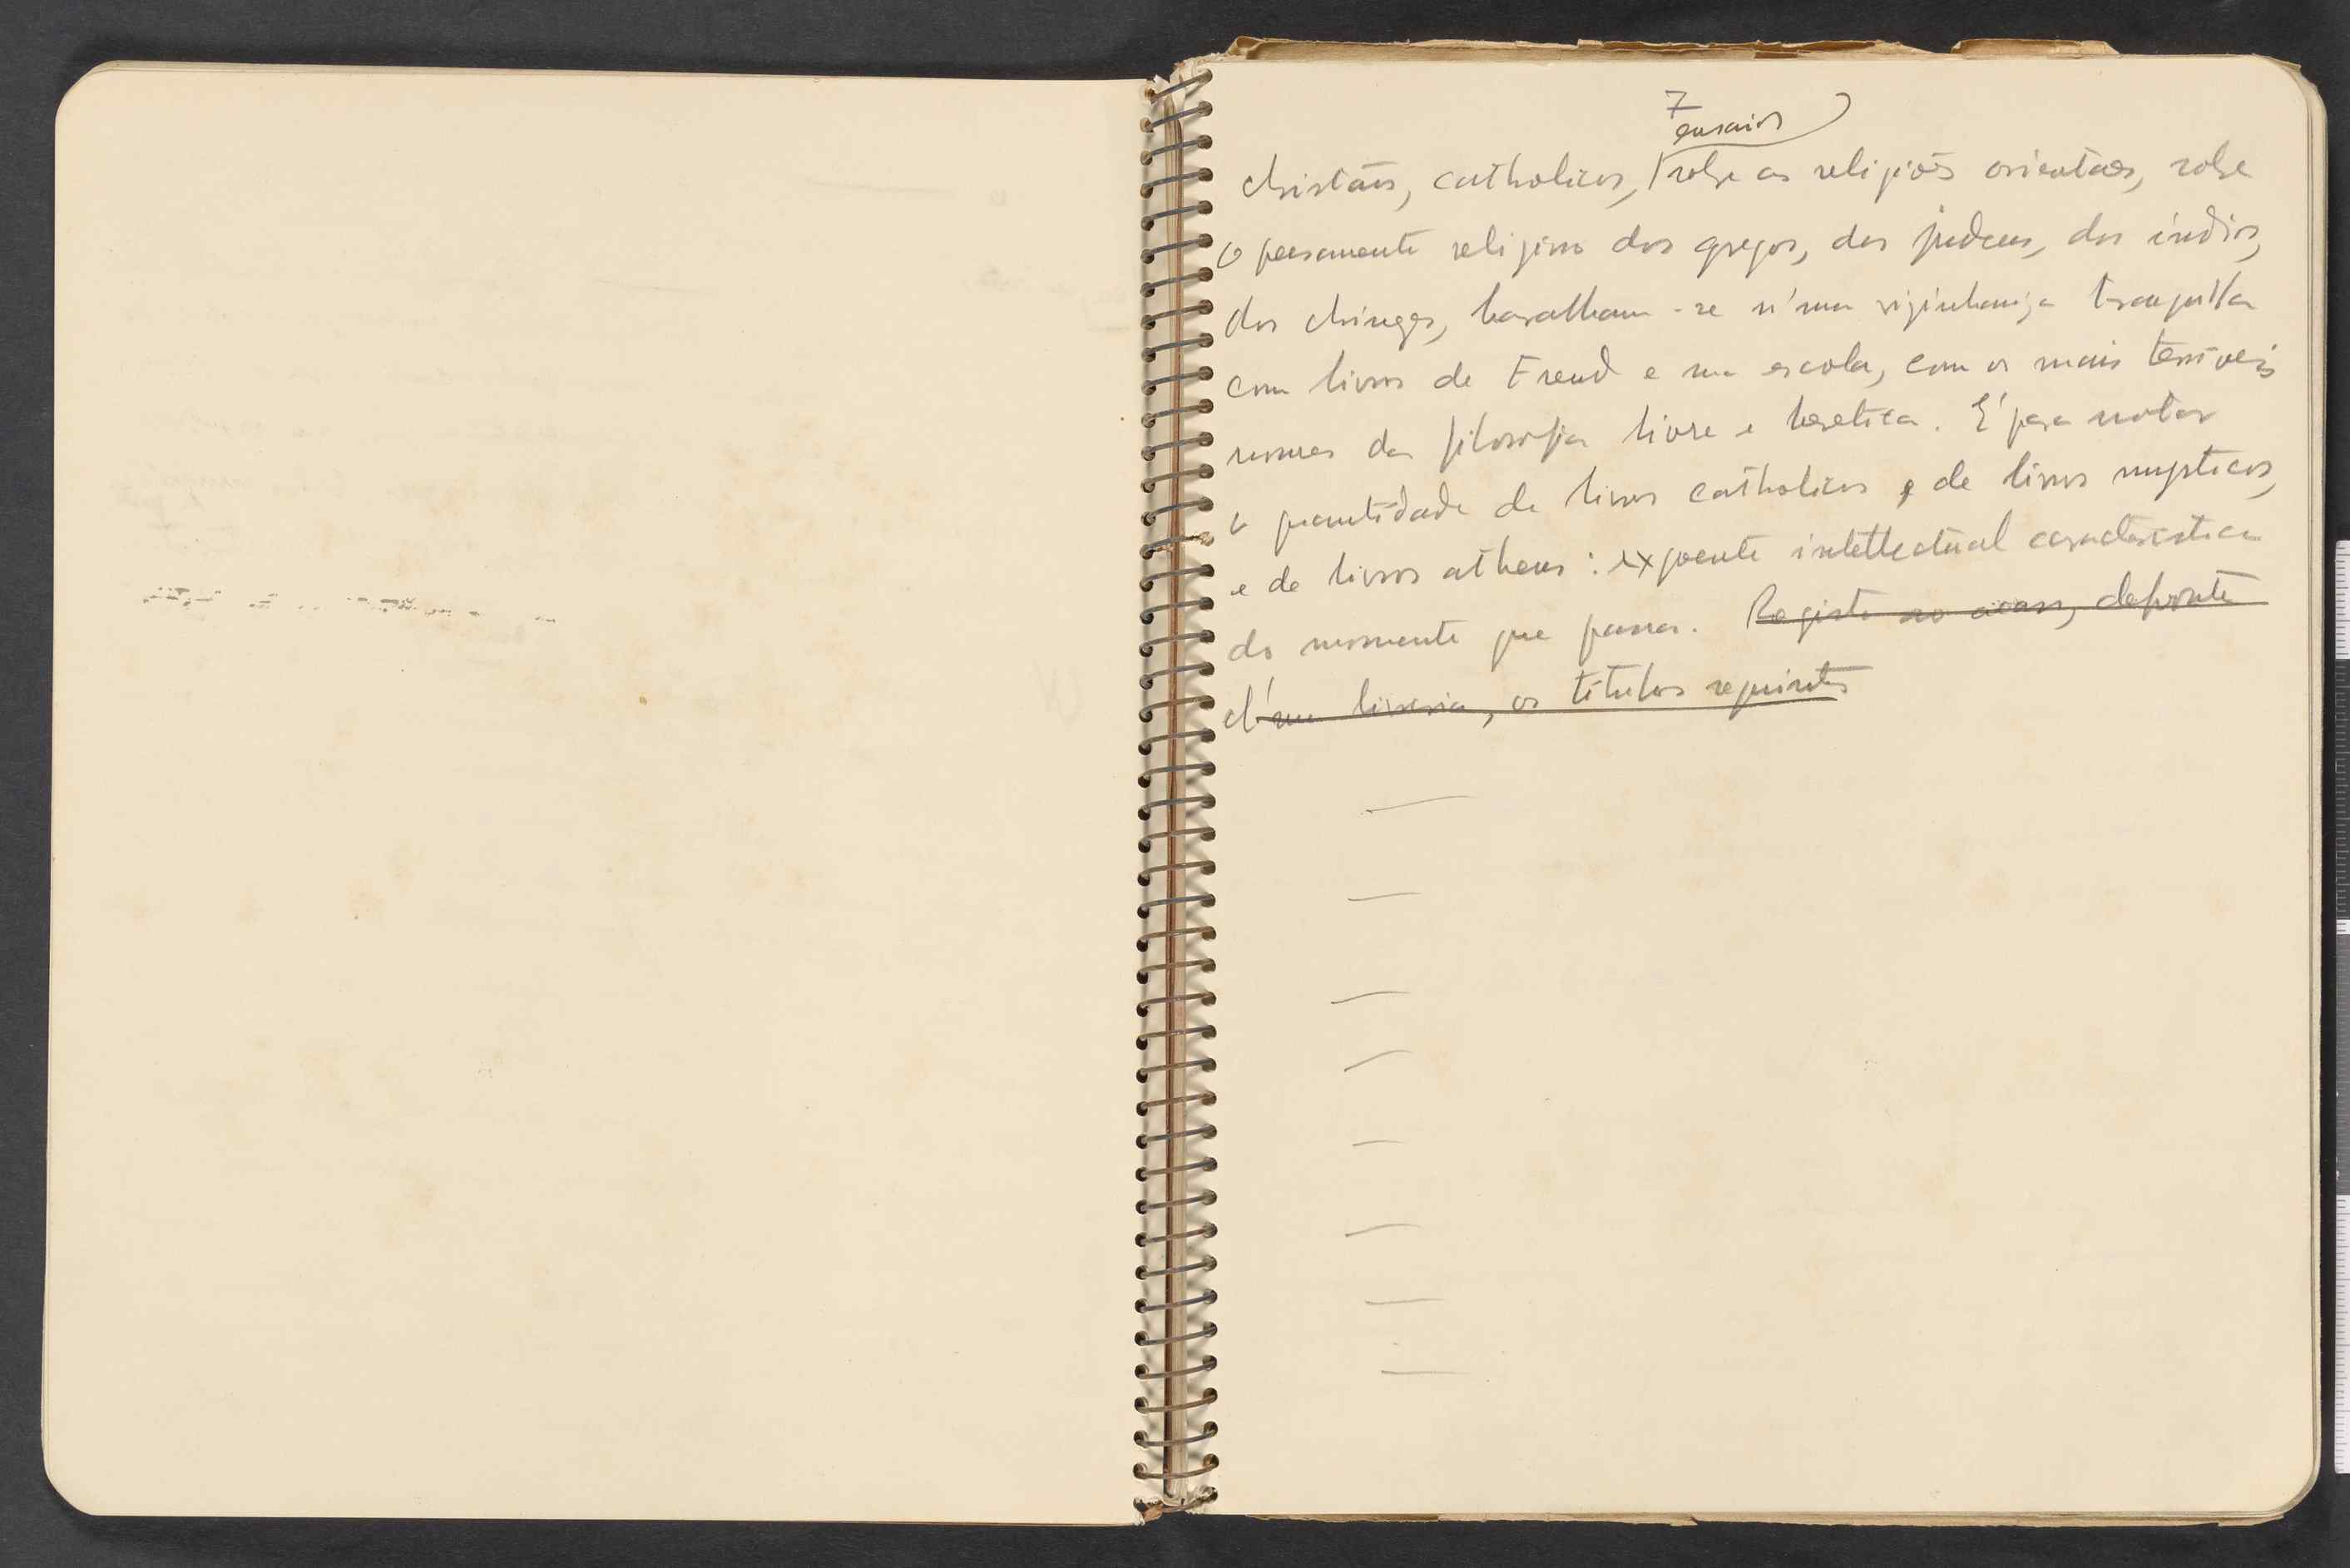 7
ensaios
christãos, catholicos, sobre as religiões orientaes, sobre
o pensamento religioso dos gregos, dos judeus, dos indios,
dos chinezes, baralham-se n'uma vizinhança tranquilla
com livros de Freud e sua escola, com os mais terriveis
nomes da filosofia livre e heretica. É para notar
a quantidade de livros catholicos e de livros mysticos,
e de livros atheus: expoente intellectual caracteristico
do momento que passa. Registo ao acaso, defronte
d'uma livraria, os titulos seguintes